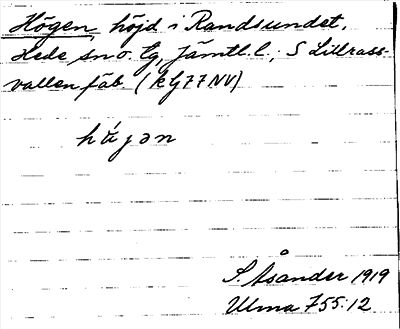 Högen, höjd i Randsundet,
Hede sn o. tg, Jämtl. l.; S Lillrass-
vallen fäb. (kGFFNV)
högən
S. Åsander 1919
Ulma 755:12